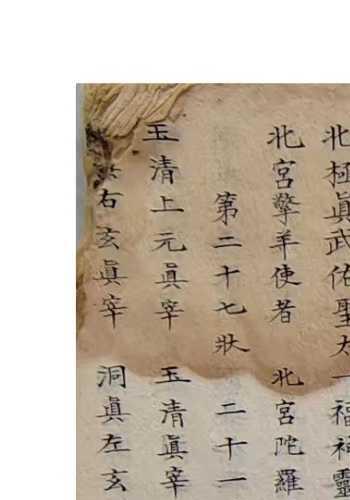 北極眞武佑聖大
福神靈
北宮擎羊使者 北宮陀羅
第二十七狀 二十一
玉清上元眞宰 玉清眞宰
右玄眞宰 洞眞左玄